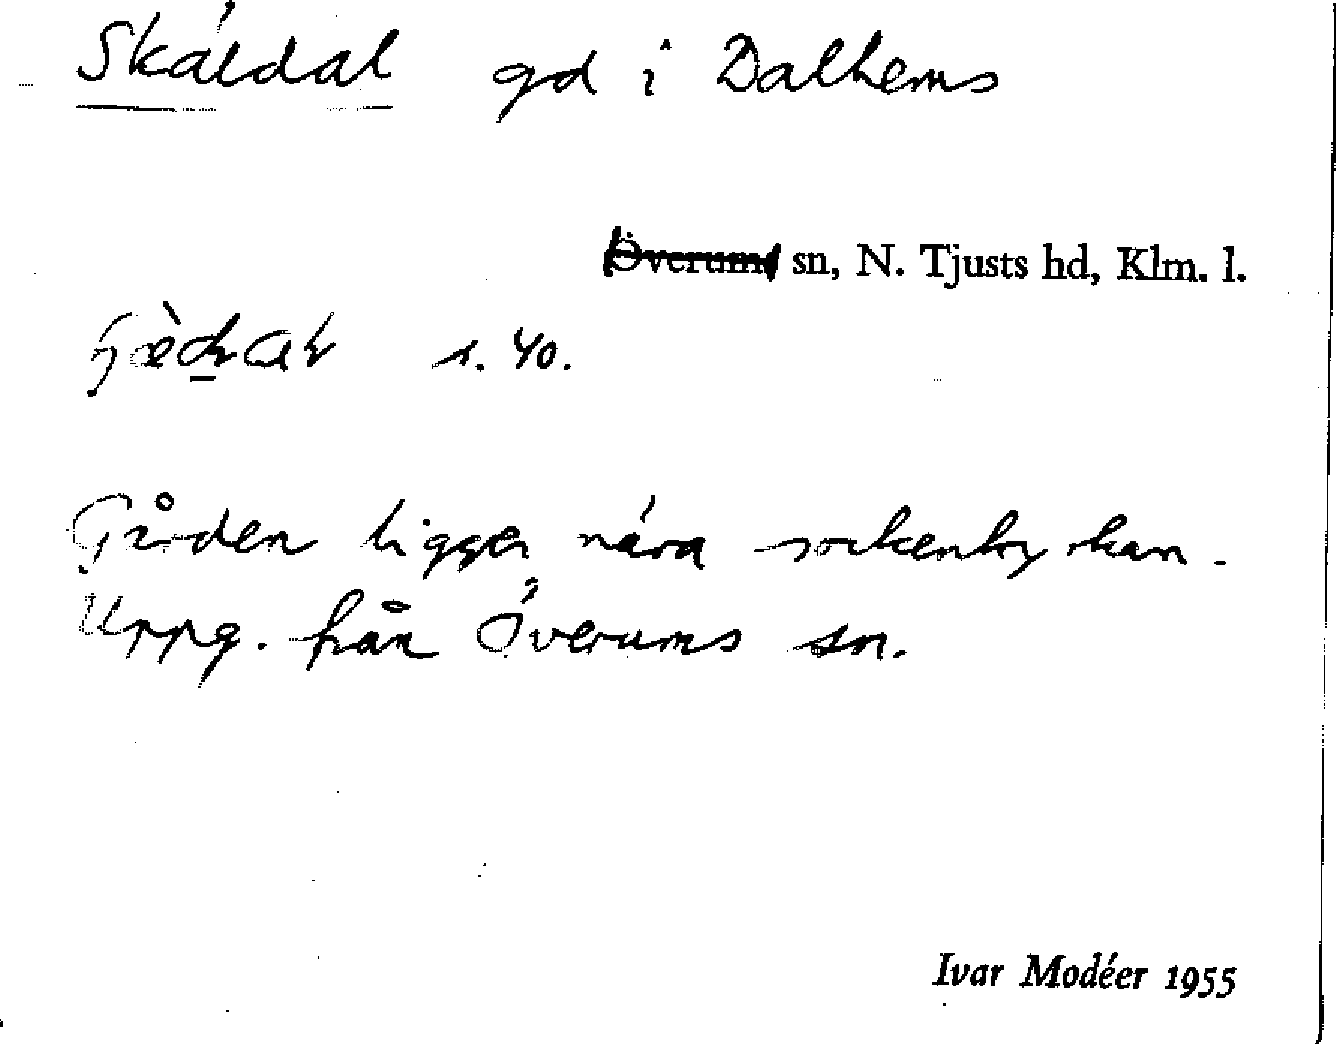 Skäldal gd i Dalhems
Överums sn, N. Tjusts hd, Klm. l.
s. 40.
Gården ligger nära sockenkyrkan.
Uppg. från Överums sn.
Ivar Modéer 1955